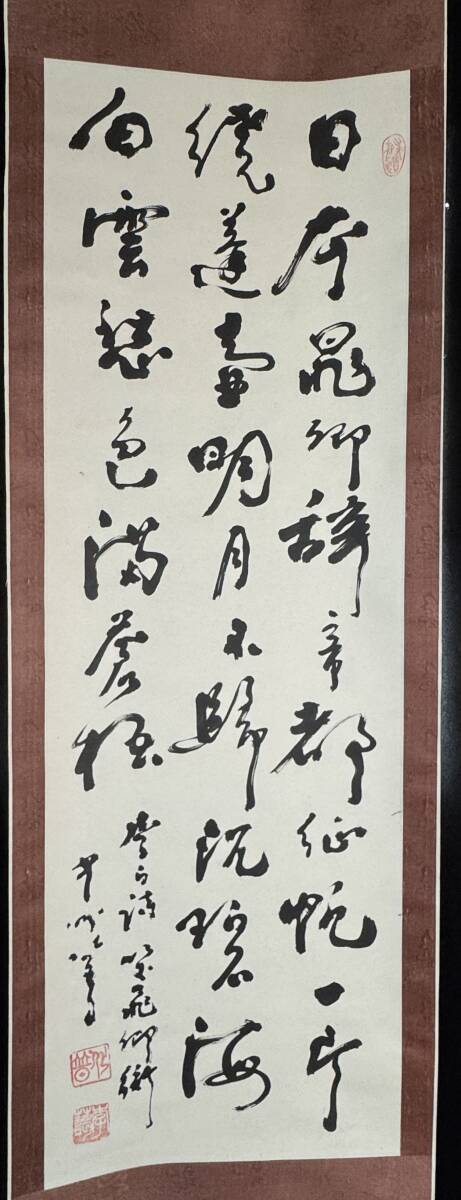 日本晁卿辞帝都征帆一片
繞蓬壷明月不歸沉碧海
白雲愁色滿蒼梧
李白詩 哭晁卿衡